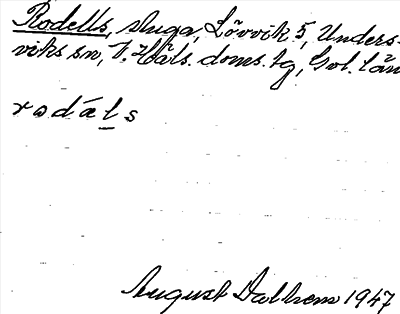 Rodells, stuga, Lövvik 5, Unders-
viks sn, V. Häls. doms. lg, Gvl. län
rodäls
August Dalhem 1947